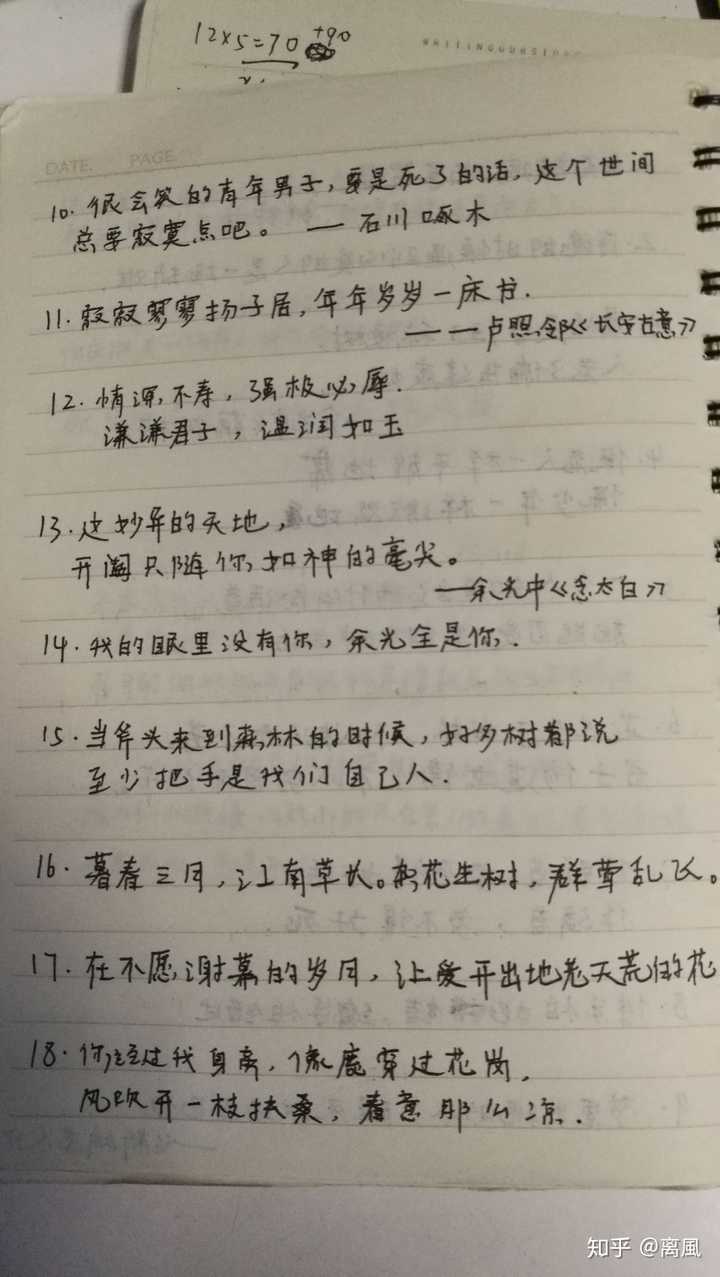 12×5=70 +90
WRITINGOURSTORY
DATE. PAGE.
10. 很会笑的青年男子，要是死了的话，这个世间
总要寂寞点吧。 — 石川啄木
11. 寂寂寥寥扬子居，年年岁岁一床书.
——卢照邻《长安古意》
12. 情深不寿，强极必辱.
谦谦君子，温润如玉
13. 这妙异的天地，
开阖只随你如神的毫尖。
—余光中《念太白》
14. 我的眼里没有你，余光全是你.
15. 当斧头来到森林的时候，好多树都说
至少把手是我们自己人.
16. 暮春三月，江南草长。杂花生树，群莺乱飞。
17. 在不愿谢幕的岁月，让爱开出地老天荒的花
18. 你经过我身旁，像鹿穿过花岗，
风吹开一枝扶桑，春意那么凉.
知乎 @离風